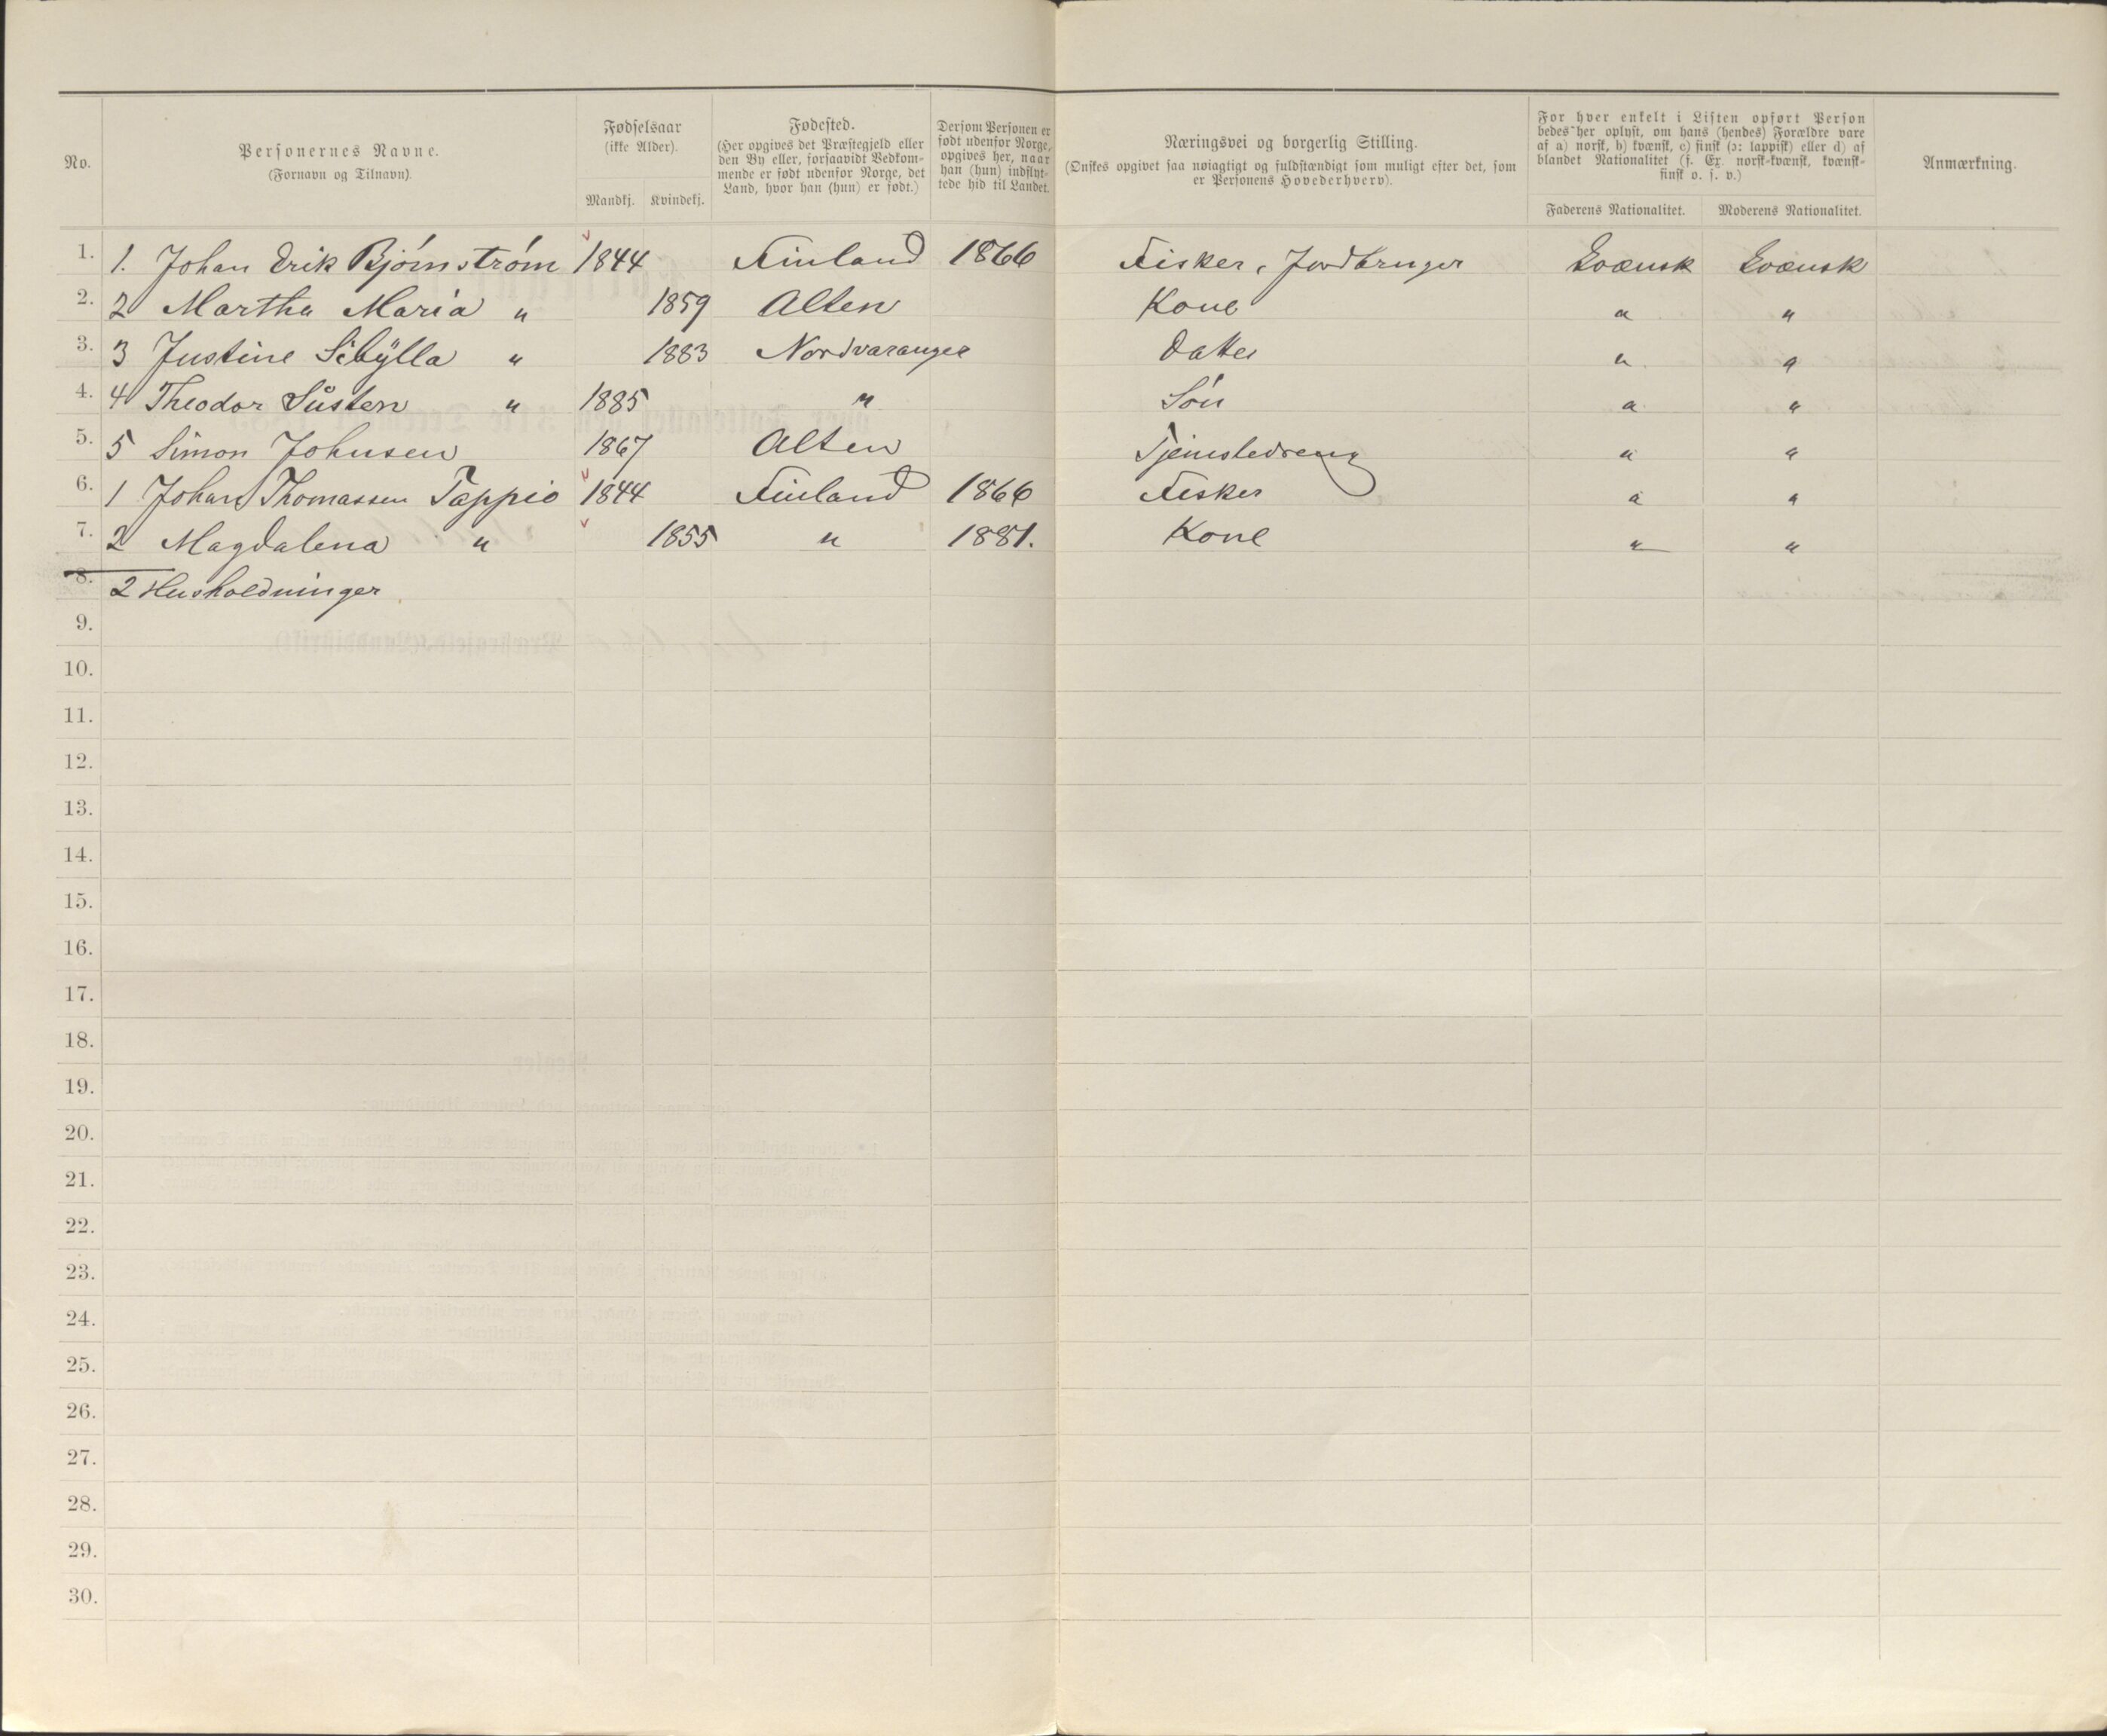 No.
Personernes Navne.
(Fornavn og Tilnavn).
Fødselsaar
(ikke Alder).
Mandkj. Kvindekj.
Fødested.
(Her opgives det Præstegjeld eller
den By eller, forsaavidt Vedkom-
mende er født udenfor Norge, det
Land, hvor han (hun) er født.)
Dersom Personen er
født udenfor Norge,
opgives her, naar
han (hun) indflyt-
tede hid til Landet.
Næringsvei og borgerlig Stilling.
(Ønskes opgivet saa nøiagtigt og fuldstændigt som muligt efter det, som
er Personens Hovederhverv).
For hver enkelt i Listen opført Person
bedes her oplyst, om hans (hendes) Forældre vare
af a) norsk, b) kvænsk, c) finsk (ɔ: lappisk) eller d) af
blandet Nationalitet (f. Ex. norsk-kvænsk, kvænsk-
finsk o. s. v.)
Faderens Nationalitet. Moderens Nationalitet.
Anmærkning.
1. 1. Johan Erik Bjørnstrøm 1844 Finland 1866 Fisker, Jordbruger Qvænsk Qvænsk
2. 2 Martha Maria " 1859 Alten Kone " "
3. 3 Justine Sibÿlla " 1883 Nordvaranger Datter " "
4. 4 Theodor " 1885 " Søn " "
5. 5 Simon Johnsen 1867 Alten Tjenstedreng " "
6. 1 Johan Thomassen Tappio 1844 Finland 1866 Fisker " "
7. 2 Magdalena " 1855 " 1881. Kone " "
8. 2 Husholdninger
9.
10.
11.
12.
13.
14.
15.
16.
17.
18.
19.
20.
21.
22.
23.
24.
25.
26.
27.
28.
29.
30.